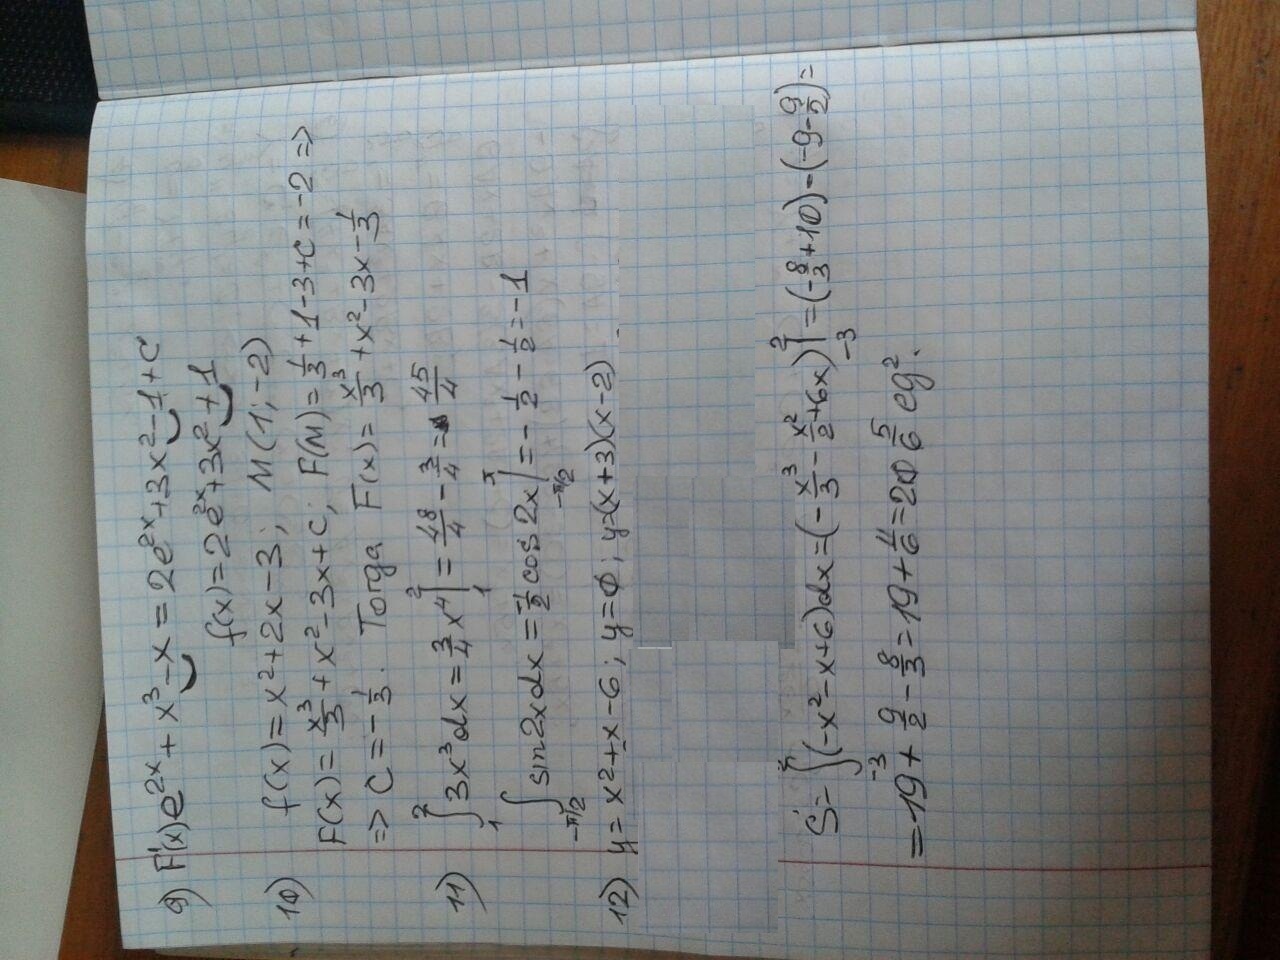 9) F'(x) e^{2x} + x³ - x = 2e^{2x} + 3x² - 1 + C
f(x) = 2e^{2x} + 3x² + 1
10) f(x) = x² + 2x - 3; M(1; -2)
F(x) = x³/3 + x² - 3x + C; F(M) = 1/3 + 1 - 3 + C = -2 =>
=> C = -1/3. Тогда F(x) = x³/3 + x² - 3x - 1/3
11) ∫₁² 3x³dx = 3/4 x⁴ |₁² = 48/4 - 3/4 = 45/4
∫_{-π/2}^{π} sin2xdx = -1/2 cos2x |_{-π/2}^{π} = -1/2 - 1/2 = -1
12) y = x² + x - 6; y = 0; y = (x+3)(x-2)
S = ∫₋₃² (-x² - x + 6)dx = (-x³/3 - x²/2 + 6x) |₋₃² = (-8/3 + 10) - (-9 - 9/2) =
= 19 + 9/2 - 8/3 = 19 + 11/6 = 20 5/6 ед².